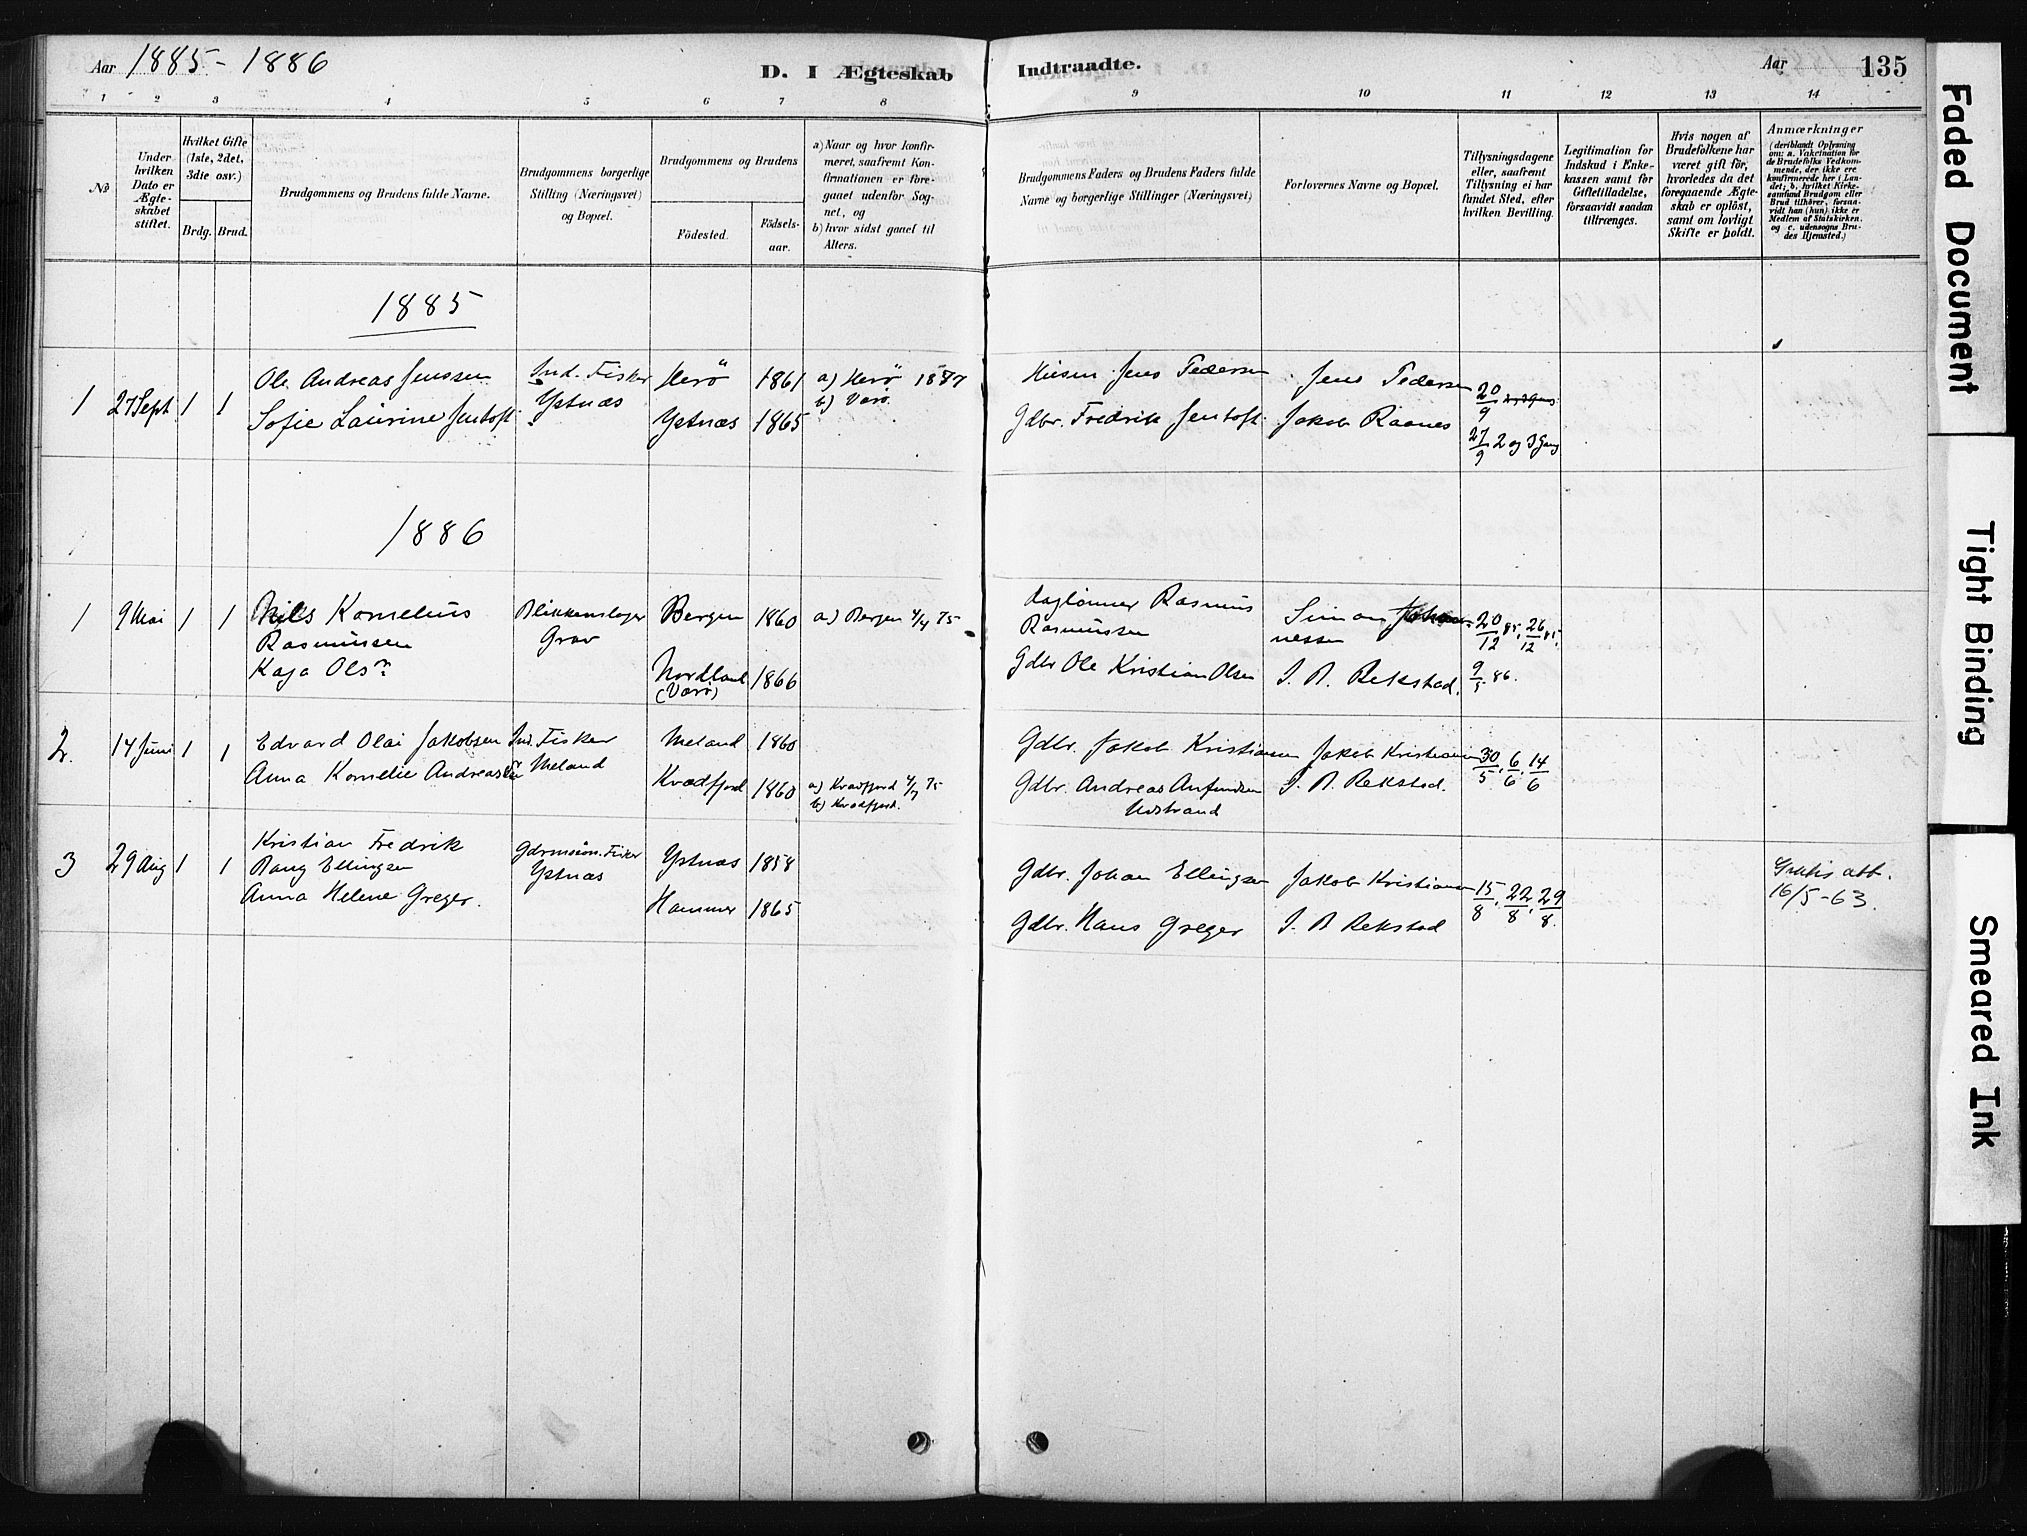 Aar 1885-1886
D. I Ægteskab Indtraadte.
Aar 135
1 2 3 4 5 6 7 8 9 10 11 12 13 14
No
Under hvilken Dato er Ægteskabet stiftet.
Hvilket Gifte (1ste, 2det, 3die osv.)
Brdg. Brud.
Brudgommens og Brudens fulde Navne.
Brudgommens borgerlige Stilling (Næringsvei) og Bopæl.
Brudgommens og Brudens
Födested.
Födselsaar.
a) Naar og hvor konfirmeret, saafremt Konfirmationen er foregaaet udenfor Sognet, og
b) hvor sidst gaaet til Alters.
Brudgommens Faders og Brudens Faders fulde Navne og borgerlige Stillinger (Næringsvei)
Forlovernes Navne og Bopæl.
Tillysningsdagene eller, saafremt Tillysning ei har fundet Sted, efter hvilken Bevilling.
Legitimation for Indskud i Enkekassen samt for Giftetilladelse, forsaavidt saadan tiltrænges.
Hvis nogen af Brudefolkene har været gift før, hvorledes da det foregaaende Ægteskab er oplöst, samt om lovligt Skifte er holdt.
Anmærkninger (deriblandt Oplysning om: a. Vakcination for de Brudefolks Vedkommende, der ikke ere konfirmerede her i Landet; b. hvilket Kirkesamfund Brudgom eller Brud tilhører, forsaavidt han (hun) ikke er Medlem af Statskirken. og c. udensogns Brudes Hjemsted.)
1885
1 27 Sept 1 1 Ole Andreas Jenssen Ind. Fisker Herö 1861 a) Herö Huusm. Jens Pedersen Jens Pedersen 20/9
Sofie Laurine Jentoft Ystnæs Ystnæs 1865 b) Værö Gdbr. Fredrik Jentoft Jakob Raanes 27/9 2 og 3 Gang
1886
1 9 Mai 1 1 Nils Kornelius Blikkenslager Bergen 1860 a) Bergen 4/4 75 Daglönner Rasmus Simon Johan- 20/12 85, 26/12 85.
Rasmussen Grav Rasmussen nessen
Kaja Olsn. Nordland (Værö) 1866 Gdbr Ole Kristian Olsen J. A. Rekstad. 9/5 86.
2. 14 Juni 1 1 Edvard Olai Jakobsen Ind. Fisker Meland 1860 Gdbr. Jakob Kristiansen Jakob Kristiansen 30/5, 6/6, 14/6
Anna Kornelie Andreasen Meland Kvædfjord 1860 a) Kvædfjord 4/7 75 Gdbr. Andreas Anfindsen J. A. Rekstad.
b) Kvædfjord.
3 29 Aug 1 1 Kristian Fredrik Gdrmsøn. Fisker Ystnæs 1858 Gdbr. Johan Ellingsen Jakob Kristiansen 15/8, 22/8, 29/8. Gratis att. 16/5-63.
Ellingsen Ystnæs
Anna Helene Greger. Hammer 1865 Gdbr. Hans Greger J. A Rekstad
Faded Document
Tight Binding
Smeared Ink